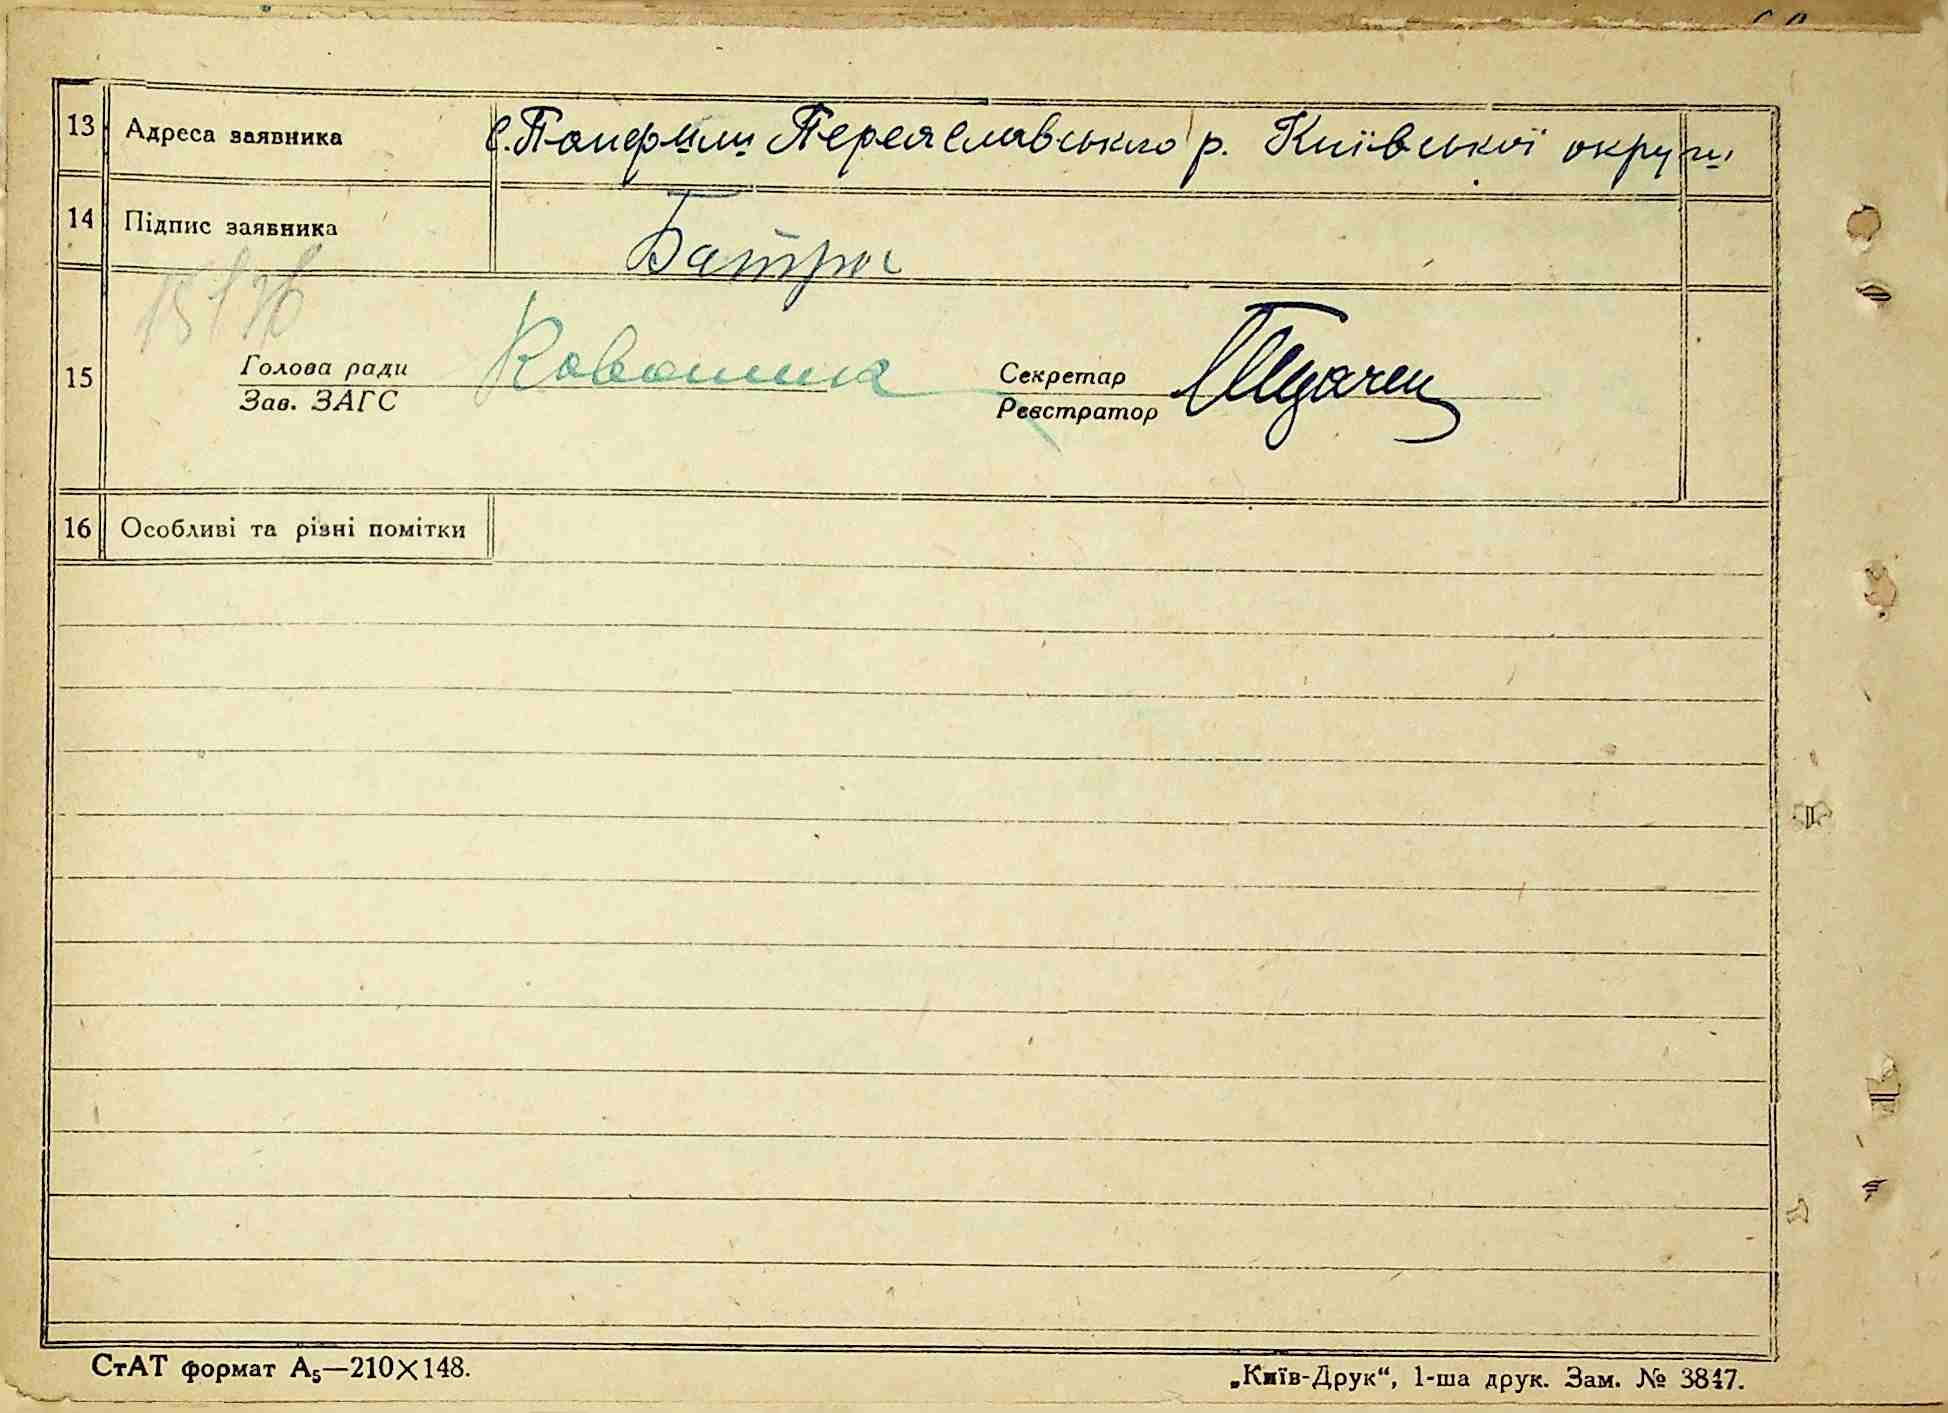 13 Адреса заявника с. Панфили Переяславського р. Київської округи
14 Підпис заявника
15 Голова ради Секретар
Зав. ЗАГС Реєстратор
16 Особливі та різні помітки
СтАТ формат А₅—210×148. „Київ-Друк“, 1-ша друк. Зам. № 3847.